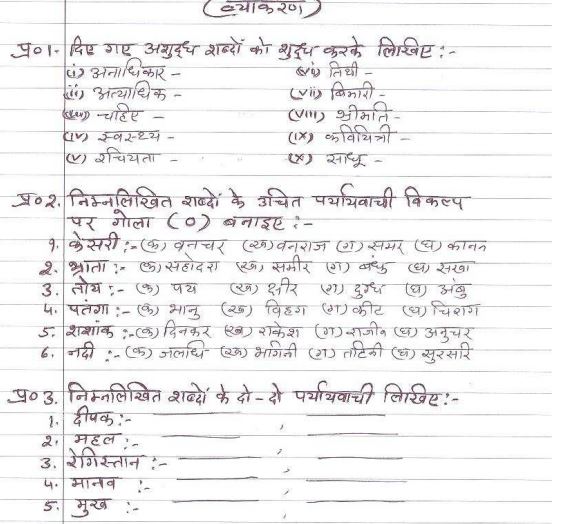 (व्याकरण)
प्र०1- दिए गए अशुद्ध शब्दों को शुद्ध करके लिखिए :-
(i) अनाधिकार - (vi) तिथी -
(ii) अत्याधिक - (vii) बिमारी -
(iii) चहिए - (viii) श्रीमति -
(iv) स्वस्थ्य - (ix) कवियित्री -
(v) रचियता - (x) साधू -
प्र०2. निम्नलिखित शब्दों के उचित पर्यायवाची विकल्प
पर गोला (०) बनाइए :-
1. केसरी :- (क) वनचर (ख) वनराज (ग) समर (घ) कानन
2. भ्राता :- (क) सहोदरा (ख) समीर (ग) बंधु (घ) सखा
3. तोय :- (क) पय (ख) क्षीर (ग) दुग्ध (घ) अंबु
4. पतंगा :- (क) भानु (ख) विहग (ग) कीट (घ) चिराग
5. शशांक :- (क) दिनकर (ख) राकेश (ग) राजीव (घ) अनुचर
6. नदी :- (क) जलधि (ख) भगिनी (ग) तटिनी (घ) सुरसरि
प्र०3. निम्नलिखित शब्दों के दो-दो पर्यायवाची लिखिए :-
1. दीपक :- ,
2. महल :- ,
3. रेगिस्तान :- ,
4. मानव :- ,
5. मुख :- ,